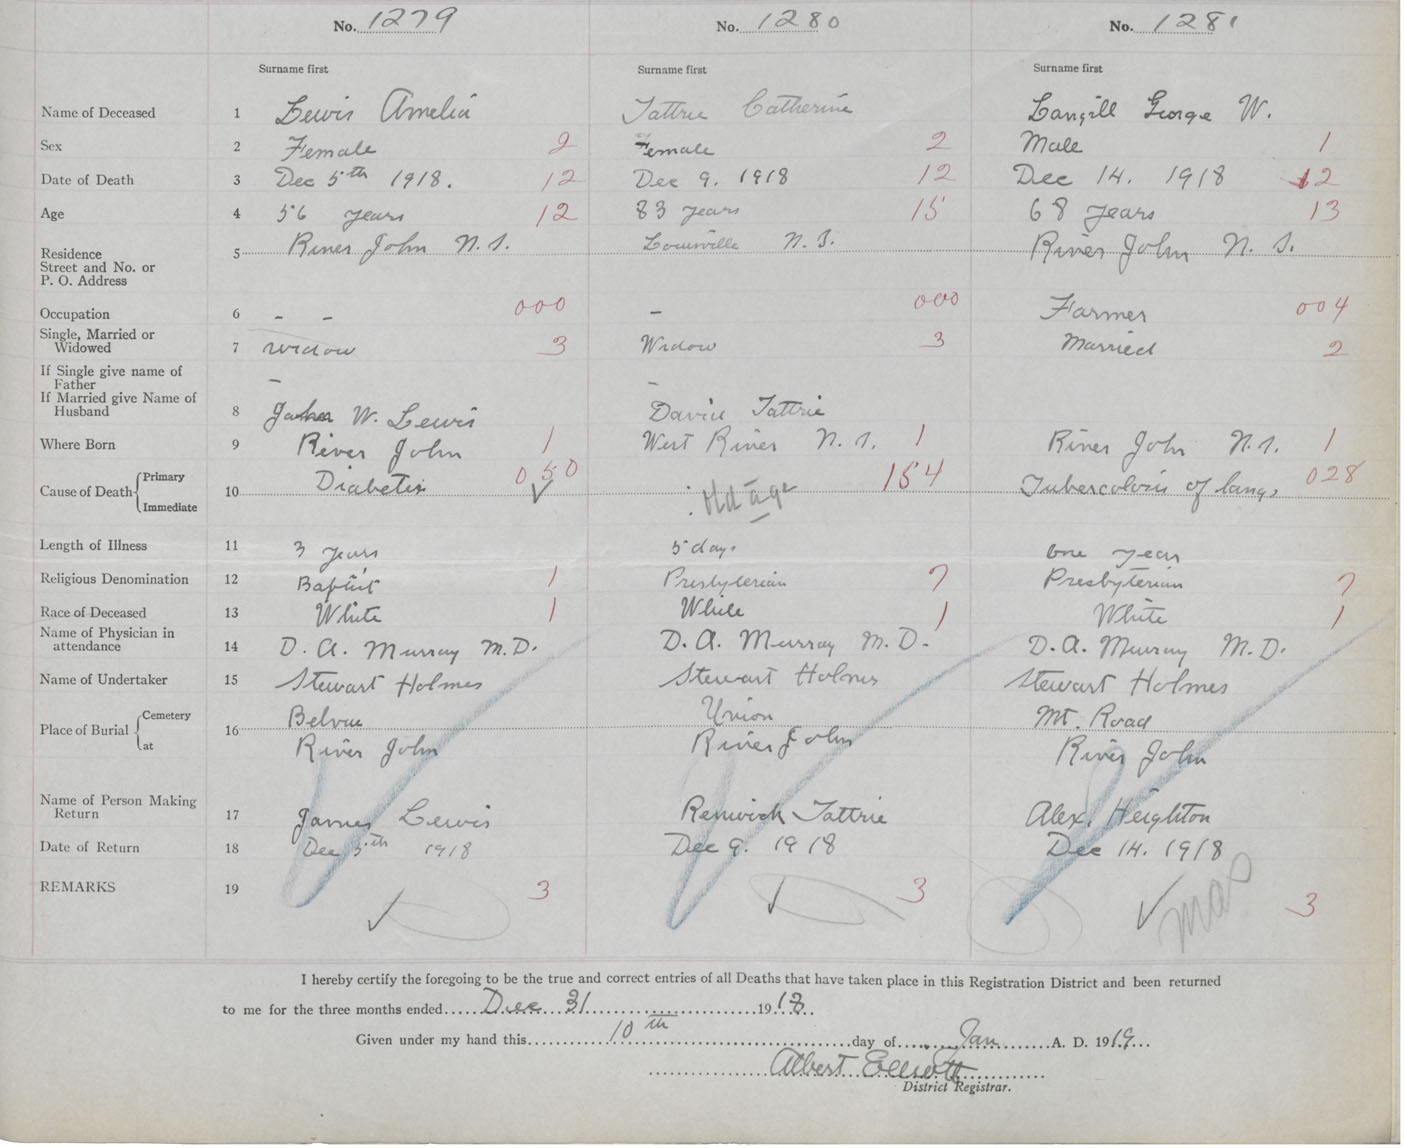 No. 1279 No. 1280 No. 1281
Surname first Surname first Surname first
Name of Deceased 1 Lewis Amelia Tattrie Catherine Langill George W.
Sex 2 Female 2 Female 2 Male 1
Date of Death 3 Dec 5th 1918. 12 Dec 9. 1918 12 Dec 14. 1918 12
Age 4 56 years 12 83 years 15 68 years 13
Residence
Street and No. or
P. O. Address
5 River John N. S. Louisville N. S. River John N. S.
Occupation 6 - - 000 - 000 Farmer 004
Single, Married or
Widowed 7 Widow 3 Widow 3 Married 2
If Single give name of
Father - -
If Married give Name of
Husband 8 John W. Lewis David Tattrie
Where Born 9 River John 1 West River N. S. 1 River John N. S. 1
Cause of Death { Primary
Immediate
10 Diabetis 050 Old age 154 Tubercolois of lungs 028
Length of Illness 11 3 years 5 days one year
Religious Denomination 12 Baptist 1 Presbyterian 7 Presbyterian 7
Race of Deceased 13 White 1 White 1 White 1
Name of Physician in
attendance 14 D. A. Murray M.D. D. A. Murray M. D. D. A. Murray M. D.
Name of Undertaker 15 Stewart Holmes Stewart Holmes Stewart Holmes
Place of Burial { Cemetery
at
16 Belvue Union Mt. Road
River John River John River John
Name of Person Making
Return 17 James Lewis Renwick Tattrie Alex. Heighton
Date of Return 18 Dec 5th 1918 Dec 9. 1918 Dec 14. 1918
REMARKS 19 3 3 3
I hereby certify the foregoing to be the true and correct entries of all Deaths that have taken place in this Registration District and been returned
to me for the three months ended Dec 31 1918
Given under my hand this 10th day of Jan A. D. 1919
Albert Elliott
District Registrar.